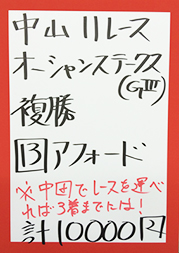 中山11レース
オーシャンステークス
(GIII)
複勝
13 アフォード
※中団でレースを運べ
れば3着までには!
計10000円